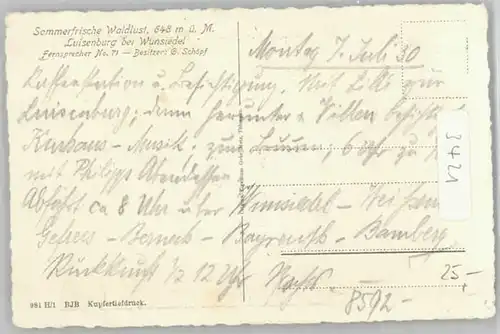 Sommerfrische Waldlust, 648 m ü. M.
Luisenburg bei Wunsiedel
Fernsprecher No. 71 — Besitzer: G. Schöpf
Montag 7. Juli 30
Kaffeestation u. Besichtigung. Mit Lilli zur
Luisenburg; dann herunter u. Villen besichtigt
Kurhaus - Musik. zum Brunnen, 6 Uhr zu
mit Philipps Abendessen
Abfahrt ca 8 Uhr über Wunsiedel -
Gefrees - Berneck - Bayreuth - Bamberg
Rückkunft ½ 12 Uhr Nachts
3421
25,-
8592-
991 H/1 BJB Kupfertiefdruck.